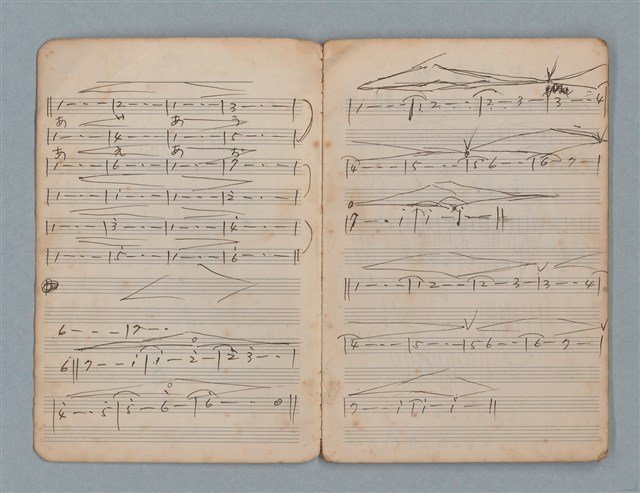 ‖1 - - - |2 - - - |1 - - - |3 - - - |
あ い あ う
1 - - - |4 - - - |1 - - - |5 - - - |
あ え あ お
1 - - - |6 - - - |1 - - - |7 - - - |
1 - - - |i - - - |1 - - - |2̇ - - - |
1 - - - |3̇ - - - |1 - - - |4̇ - - - |
1 - - - |5̇ - - - |1 - - - |6̇ - - - ‖
6 - - - |7 - - -
6‖7 - - i |i - 2̇ - |2̇ 3̇ - - |
|4̇ - - 5̇ |5̇ - 6̇ - |6̇ - - 0‖
|1 - - - |1 2 - - |2 - 3 - |3 - - 4|
|4 - - - |5 - - - |5 6 - - |6 - 7 - |
|7 - - i |i - i - ‖
‖1 - - - |2 - - - |2 - 3 - |3 - - 4|
|4 - - - |5 - - - |5 6 - - |6 - 7 - |
|7 - - i |i - i - ‖